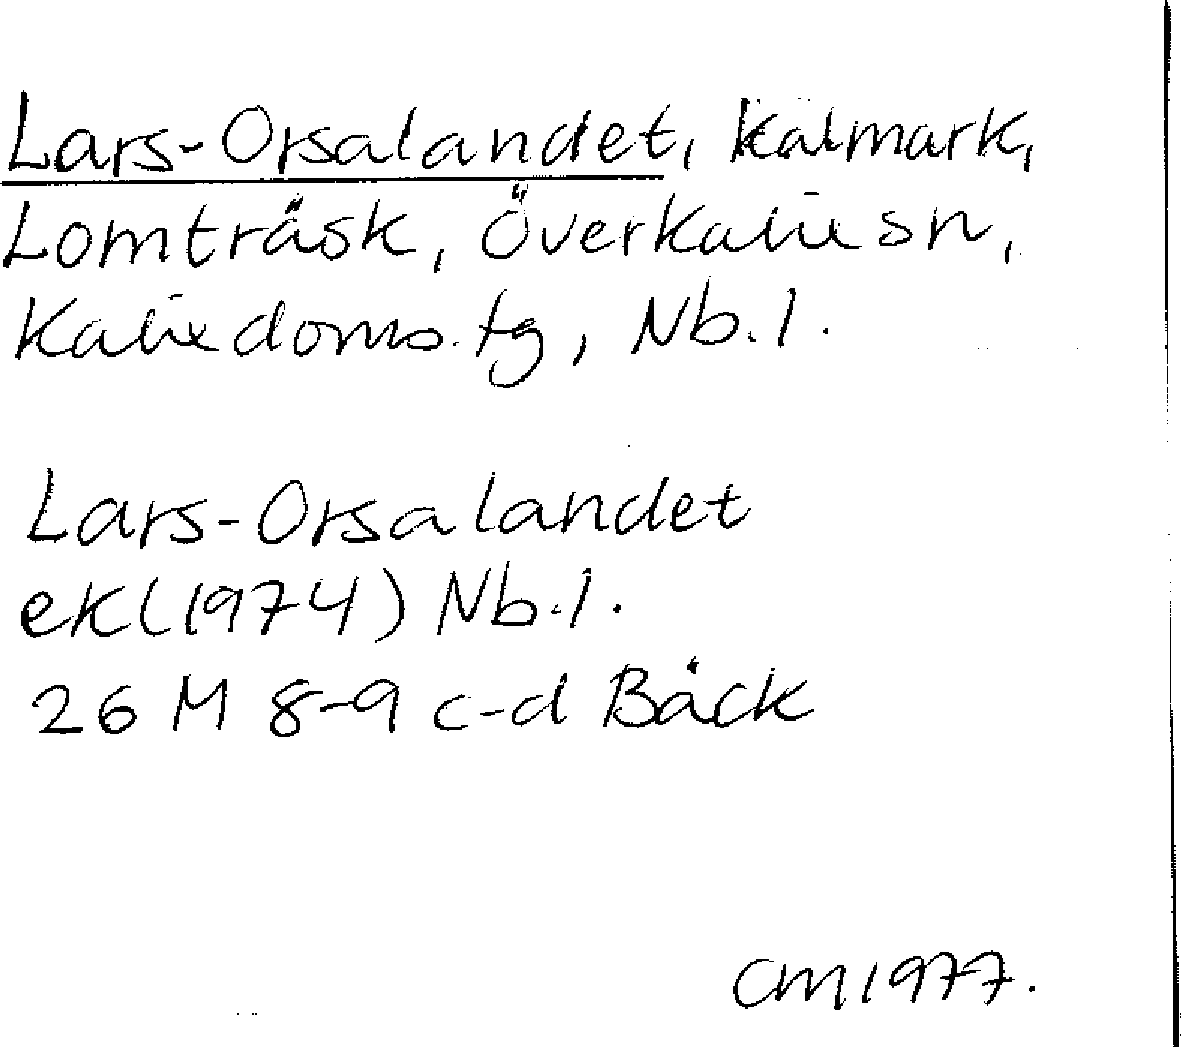 Lars-Orsalandet, kalmark,
Lomträsk, Överkalix sn,
Kalix doms. tg, Nb. l.
Lars-Orsalandet
ek (1974) Nb. l.
26 M 8-9 c-d Bäck
CM 1977.